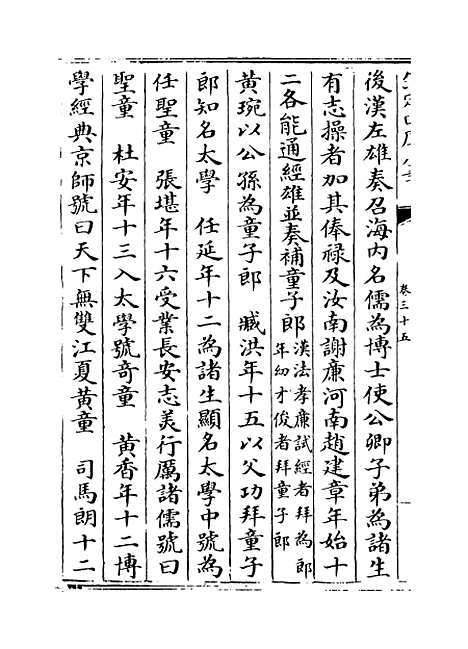 卷三十五
後漢左雄奏召海内名儒為博士使公卿子弟為諸生
有志操者加其俸禄及汝南謝廉河南趙建章年始十
二各能通經雄並奏補童子郎漢法孝廉試經者拜為郎年幼才俊者拜童子郎
黄琬以公孫為童子郎　臧洪年十五以父功拜童子
郎知名太學　任延年十二為諸生顯名太學中號為
任聖童　張堪年十六受業長安志美行厲諸儒號曰
聖童　杜安年十三入太學號奇童　黄香年十二博
學經典京師號曰天下無雙江夏黄童　司馬朗十二